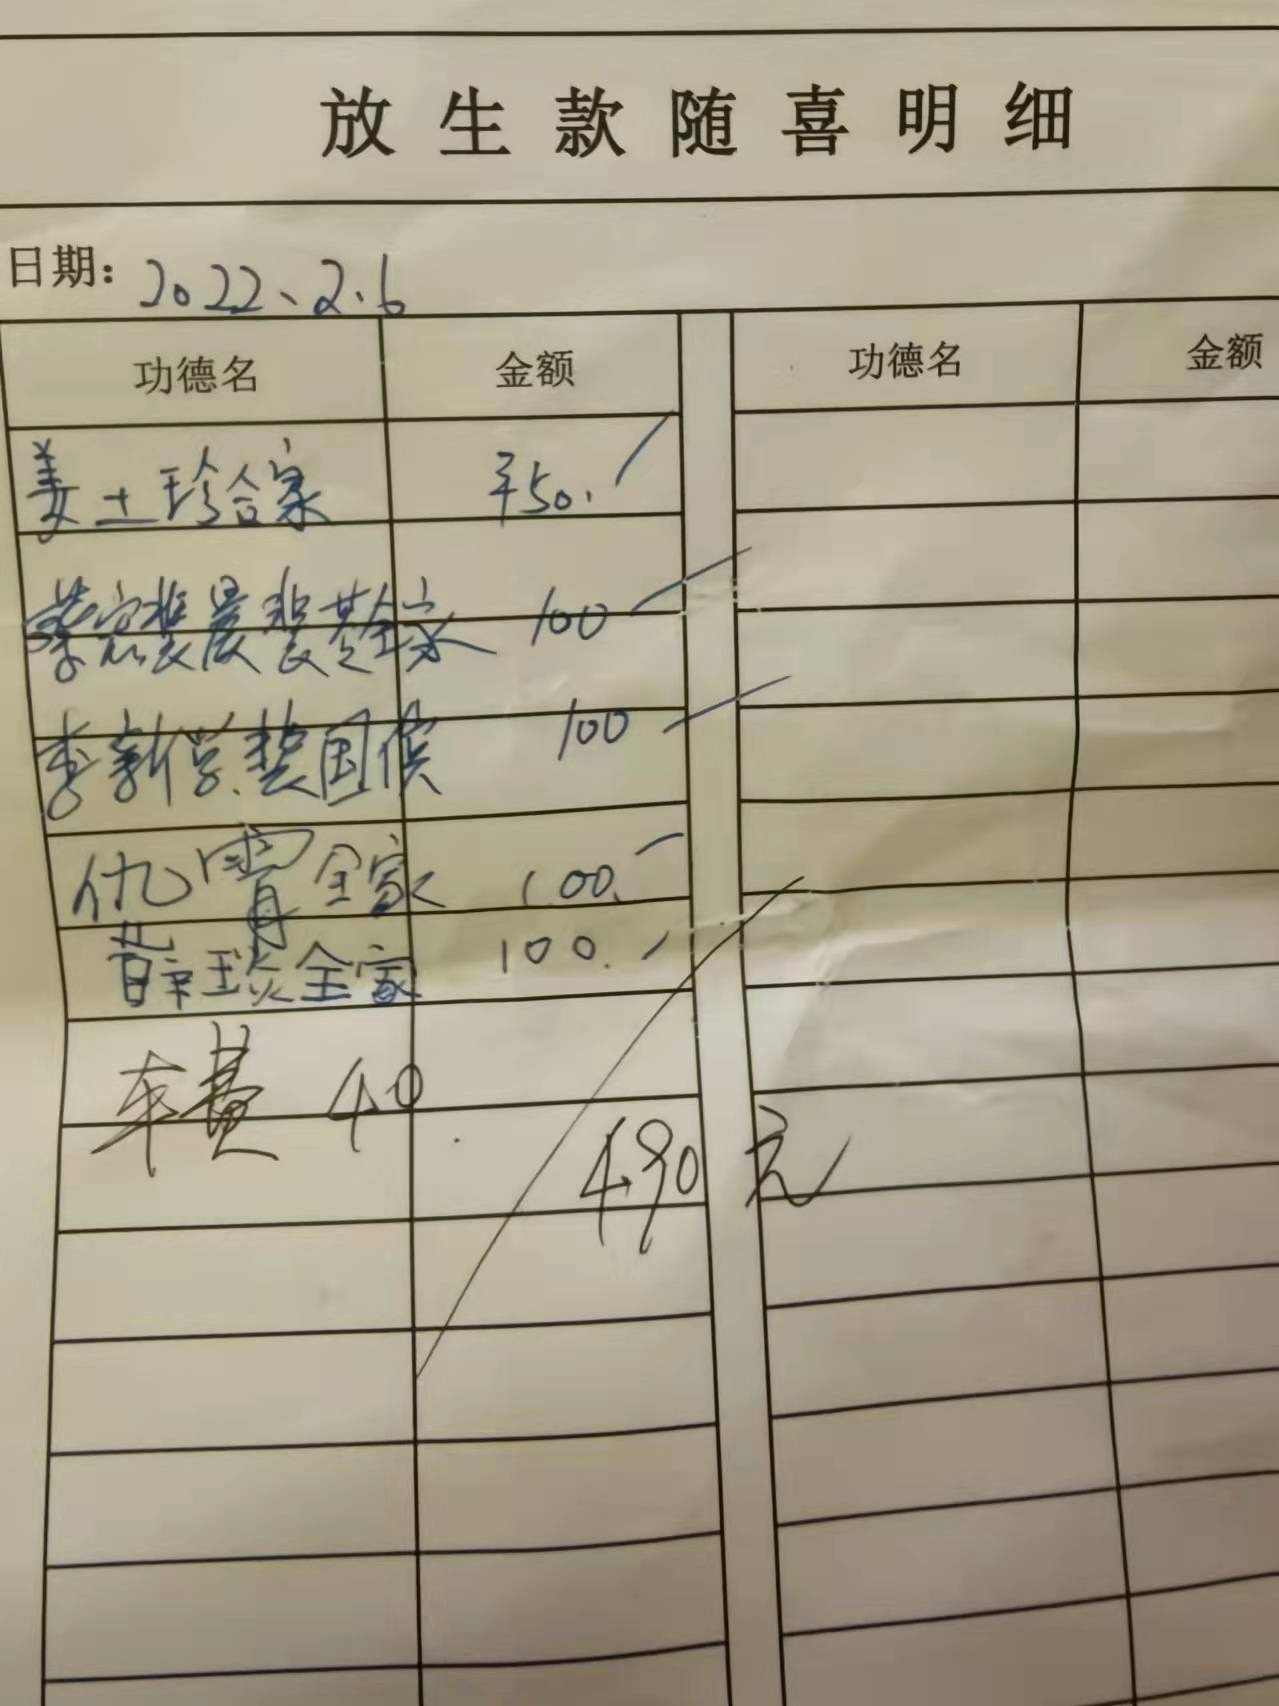 放生款随喜明细
日期: 2022、2.6
功德名 金额 功德名 金额
姜土珍合家 ¥50.
晨 全家 100
李新学. 国侯 100
仇霄全家 100.
薛琰全家 100.
车费 40
490元